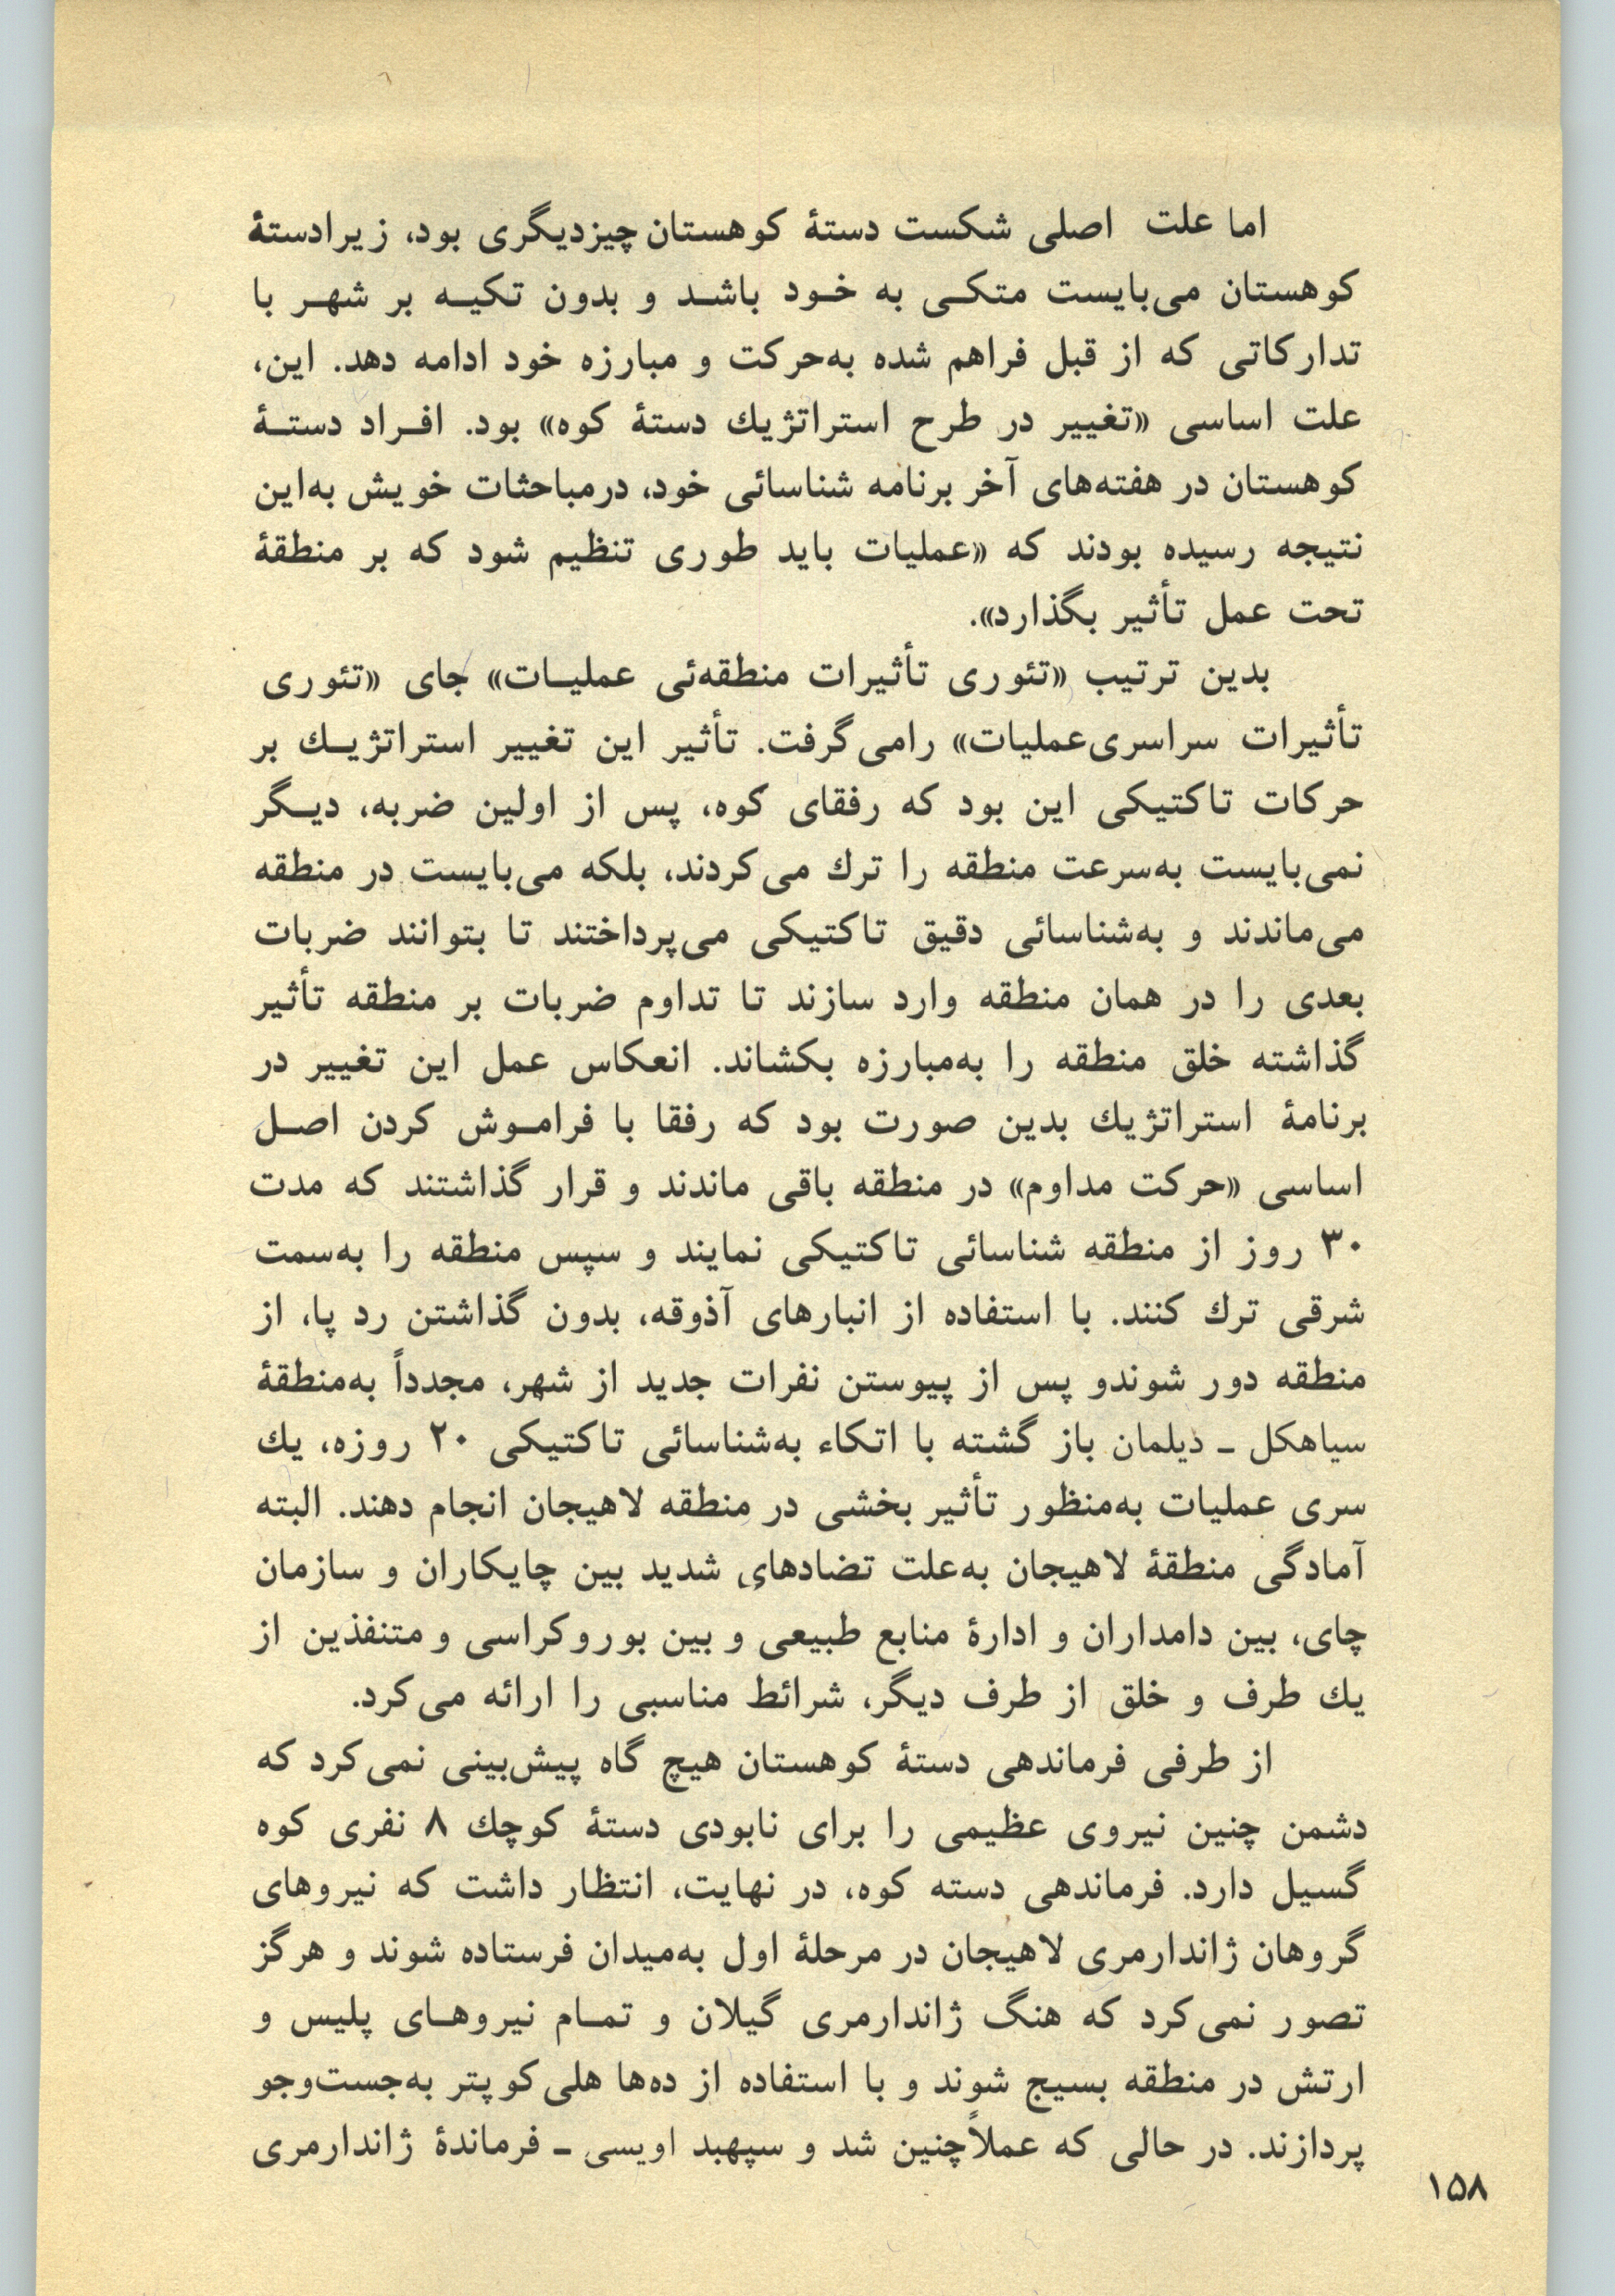 اما علت اصلی شکست دستهٔ کوهستان چیزدیگری بود، زیرادستهٔ
کوهستان می‌بایست متکی به خود باشد و بدون تکیه بر شهر با
تدارکاتی که از قبل فراهم شده به‌حرکت و مبارزه خود ادامه دهد. این،
علت اساسی «تغییر در طرح استراتژیك دستهٔ کوه» بود. افراد دستهٔ
کوهستان در هفته‌های آخر برنامه شناسائی خود، درمباحثات خویش به‌این
نتیجه رسیده بودند که «عملیات باید طوری تنظیم شود که بر منطقهٔ
تحت عمل تأثیر بگذارد».
بدین ترتیب «تئوری تأثیرات منطقه‌ئی عملیات» جای «تئوری
تأثیرات سراسری‌عملیات» رامی‌گرفت. تأثیر این تغییر استراتژیك بر
حرکات تاکتیکی این بود که رفقای کوه، پس از اولین ضربه، دیگر
نمی‌بایست به‌سرعت منطقه را ترك می‌کردند، بلکه می‌بایست در منطقه
می‌ماندند و به‌شناسائی دقیق تاکتیکی می‌پرداختند تا بتوانند ضربات
بعدی را در همان منطقه وارد سازند تا تداوم ضربات بر منطقه تأثیر
گذاشته خلق منطقه را به‌مبارزه بکشاند. انعکاس عمل این تغییر در
برنامهٔ استراتژیك بدین صورت بود که رفقا با فراموش کردن اصل
اساسی «حرکت مداوم» در منطقه باقی ماندند و قرار گذاشتند که مدت
۳۰ روز از منطقه شناسائی تاکتیکی نمایند و سپس منطقه را به‌سمت
شرقی ترك کنند. با استفاده از انبارهای آذوقه، بدون گذاشتن رد پا، از
منطقه دور شوندو پس از پیوستن نفرات جدید از شهر، مجدداً به‌منطقهٔ
سیاهکل ـ دیلمان باز گشته با اتکاء به‌شناسائی تاکتیکی ۲۰ روزه، یك
سری عملیات به‌منظور تأثیر بخشی در منطقه لاهیجان انجام دهند. البته
آمادگی منطقهٔ لاهیجان به‌علت تضادهای شدید بین چایکاران و سازمان
چای، بین دامداران و ادارهٔ منابع طبیعی و بین بوروکراسی و متنفذین از
یك طرف و خلق از طرف دیگر، شرائط مناسبی را ارائه می‌کرد.
از طرفی فرماندهی دستهٔ کوهستان هیچ گاه پیش‌بینی نمی‌کرد که
دشمن چنین نیروی عظیمی را برای نابودی دستهٔ کوچك ۸ نفری کوه
گسیل دارد. فرماندهی دسته کوه، در نهایت، انتظار داشت که نیروهای
گروهان ژاندارمری لاهیجان در مرحلهٔ اول به‌میدان فرستاده شوند و هرگز
تصور نمی‌کرد که هنگ ژاندارمری گیلان و تمام نیروهای پلیس و
ارتش در منطقه بسیج شوند و با استفاده از ده‌ها هلی‌کوپتر به‌جست‌وجو
پردازند. در حالی که عملاً‌چنین شد و سپهبد اویسی ـ فرماندهٔ ژاندارمری
۱۵۸